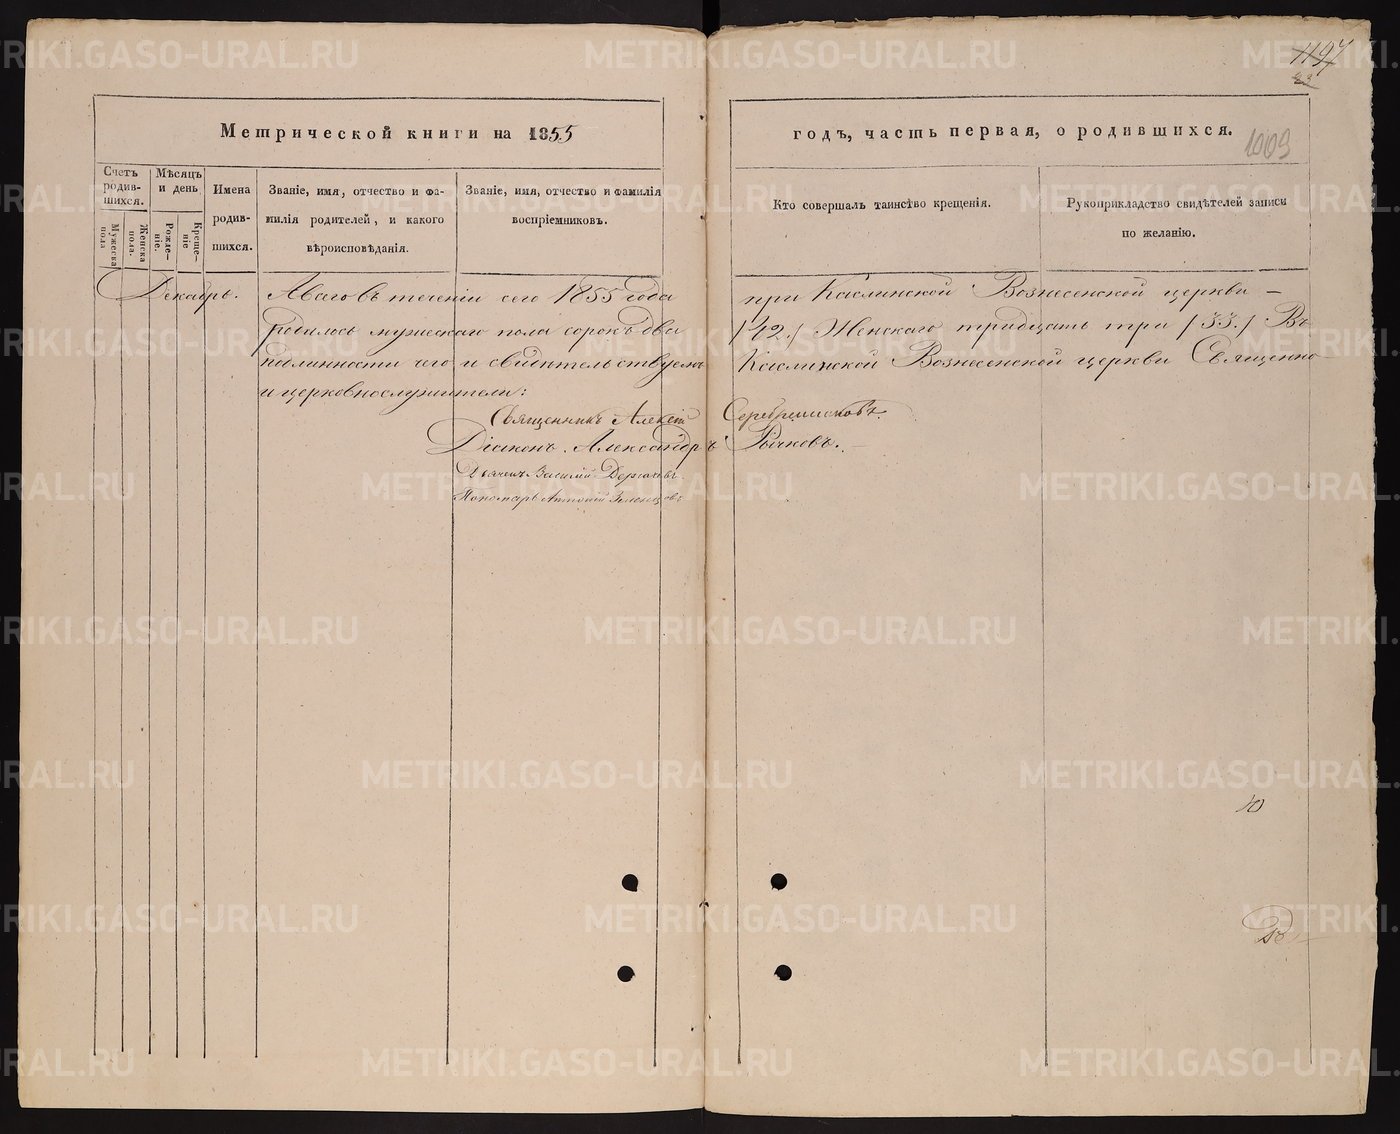 1197
23
Метрической книги на 1855
годъ, часть первая, о родившихся.
1009
Счетъ родив-шихся.
Мужеска пола
Женска пола.
Мѣсяцъ и день
Рожде-ніе.
Креще-ніе
Имена родив-шихся.
Званіе, имя, отчество и фа-
милія родителей, и какого
вѣроисповѣданія.
Званіе, имя, отчество и фамилія
воспріемниковъ.
Кто совершалъ таинство крещенія.
Рукоприкладство свидѣтелей записи
по желанію.
Декабрь. А всего въ теченіи сего 1855 года при Каслинской Вознесенской церкви —
родилось мужескаго пола сорокъ два /42./ Женскаго тридцать три /33./ Въ
чего и свидѣтельствуемъ Каслинской Вознесенской церкви Священно
и церковнослужители:
Священникъ Алексій Серебренниковъ.
Діаконъ Александръ Рычковъ.
Дьячекъ Василій
Пономарь Антоній
METRIKI.GASO-URAL.RU